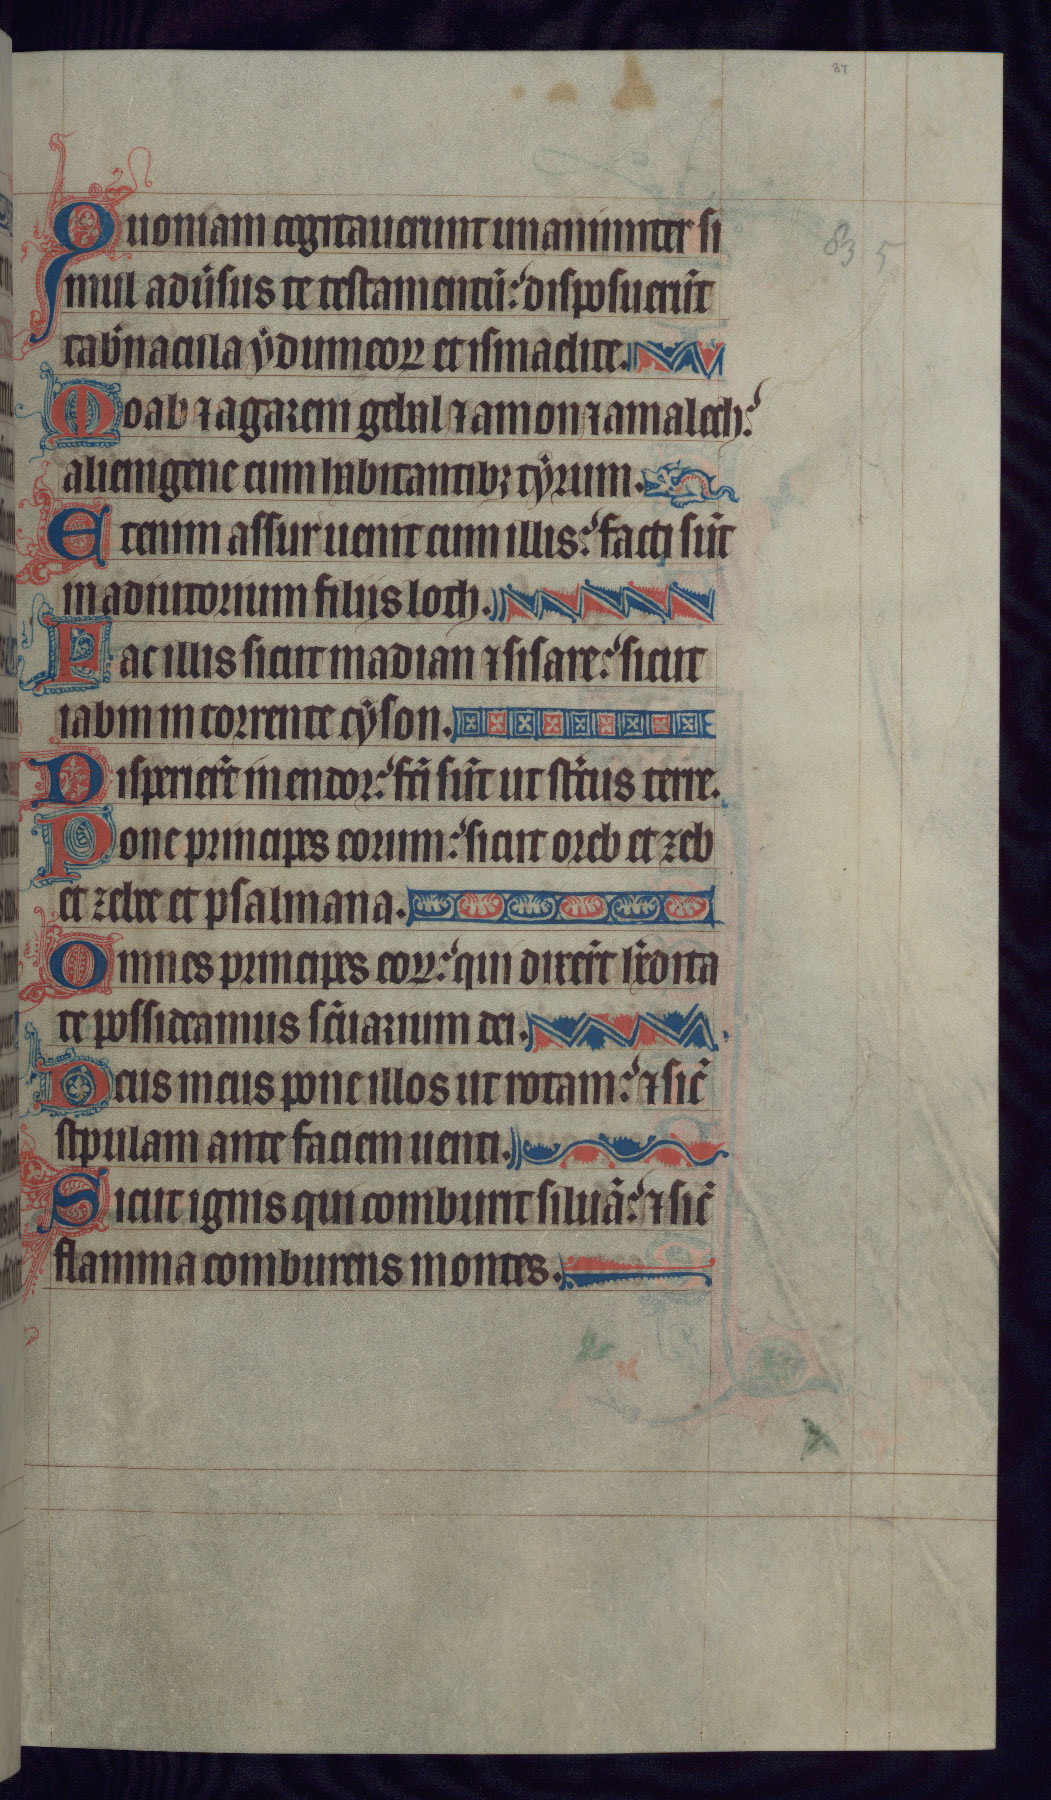 Quoniam cogitauerunt unanimiter si
mul adu̾sus te testamentū: disposuerūt
tab̾nacula ydumeoꝝ et ismaelite.
Moab ⁊ agareni gebal ⁊ amon ⁊ amalech:
alienigene cum habitantibꝫ tyrum.
Etenim assur uenit cum illis: facti sūt
in adiutorium filijs loth.
Fac illis sicut madian ⁊ sisare: sicut
iabin in torrente cyson.
Disperier̄t in endor: fc̄i sūt ut st̾cus terre.
Pone principes eorum: sicut oreb et zeb
et zebee et psalmana.
Omnes principes eoꝝ: qui dixer̄t h̾edita
te possideamus sc̄uarium dei.
Deus meus pone illos ut rotam: ⁊ sic̄
stipulam ante faciem uenti.
Sicut ignis qui comburit siluā: ⁊ sic̄
flamma comburens montes.